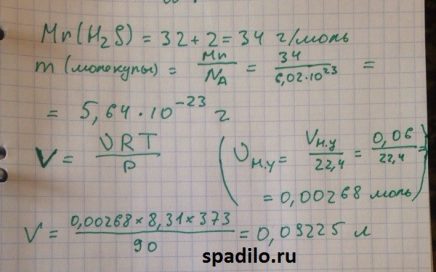 Mr(H₂S) = 32 + 2 = 34 г/моль
m (молекулы) = Mr/Nₐ = 34/6,02·10²³ =
= 5,64 · 10⁻²³ г
V = νRT/P (νн.у = Vн.у/22,4 = 0,06/22,4 =
= 0,00268 моль)
V = 0,00268 × 8,31 × 373/90 = 0,09225 л
spadilo.ru